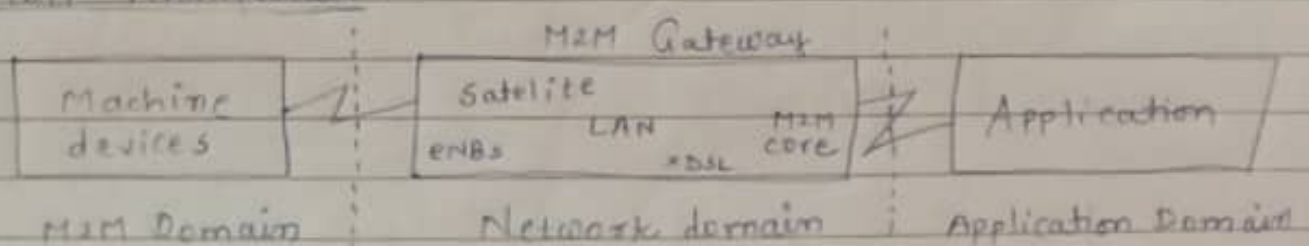 M2M Gateway
Machine
devices
Satelite
LAN
eNBs
xDSL
M2M
core
Application
M2M Domain
Network domain
Application Domain